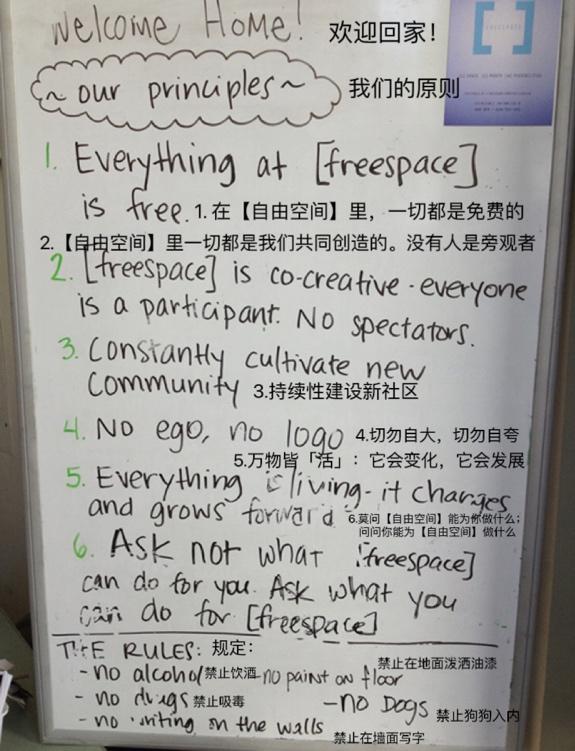 Welcome Home! 欢迎回家！
~ our principles ~ 我们的原则
1. Everything at [freespace]
is free. 1. 在【自由空间】里，一切都是免费的
2.【自由空间】里一切都是我们共同创造的。没有人是旁观者
2. [freespace] is co-creative - everyone
is a participant. No spectators.
3. Constantly cultivate new
community 3.持续性建设新社区
4. No ego, no logo 4.切勿自大，切勿自夸
5.万物皆「活」：它会变化，它会发展
5. Everything is living - it changes
and grows forward
6.莫问【自由空间】能为你做什么；
问问你能为【自由空间】做什么
6. Ask not what [freespace]
can do for you. Ask what you
can do for [freespace]
THE RULES: 规定：
禁止在地面泼洒油漆
- no alcohol 禁止饮酒 - no paint on floor
- no drugs 禁止吸毒 - no Dogs 禁止狗狗入内
- no writing on the walls
禁止在墙面写字